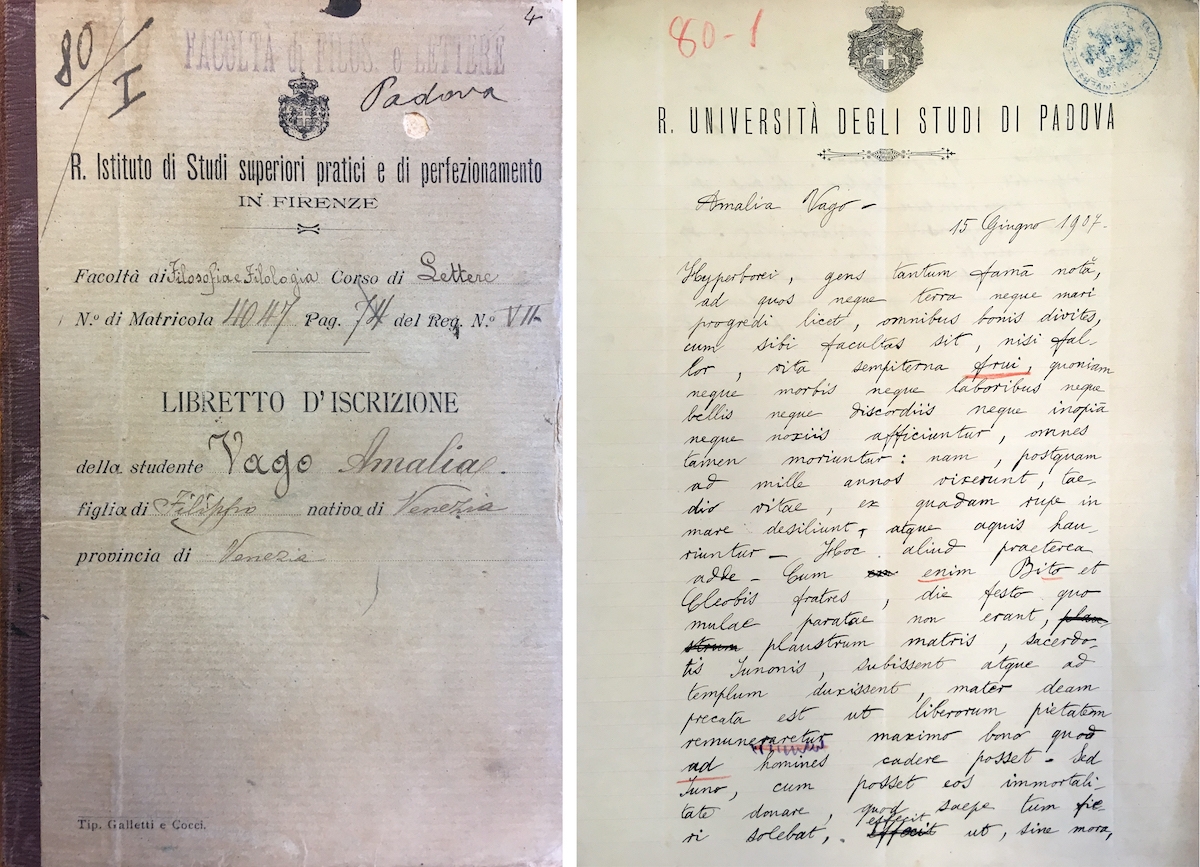 4
80/I
FACOLTÀ di FILOS. e LETTERE
Padova
R. Istituto di Studi superiori pratici e di perfezionamento
IN FIRENZE
Facoltà di Filosofia e Filologia Corso di Lettere
N.º di Matricola 4047 Pag. 74 del Reg. N.º VII
LIBRETTO D'ISCRIZIONE
della studente Vago Amalia.
figlia di Filippo nativa di Venezia
provincia di Venezia
Tip. Galletti e Cocci.
80-1
R. UNIVERSITÀ DEGLI STUDI DI PADOVA
Amalia Vago -
15 Giugno 1907.
Hyperborei, gens tantum famā notā,
ad quos neque terra neque mari
progredi licet, omnibus bonis divites,
cum sibi facultas sit, nisi fal-
lor, vita sempiterna frui, quoniam
neque morbis neque laboribus neque
bellis neque discordiis neque inopiā
neque noxiis afficiuntur, omnes
tamen moriuntur: nam, postquam
ad mille annos vixerunt, tae-
dio vitae, ex quadam rupe in
mare desiliunt, atque aquis hau-
riuntur - Hoc aliud praeterea
adde - Cum enim Bito et
Cleobis fratres, die festo quo
mulae paratae non erant, plau-
strum plaustrum matris, sacerdo-
tis Iunonis, subissent atque ad
templum duxissent, mater deam
precata est ut liberorum pietatem
remuneraretur maximo bono quod
ad homines cadere posset - Sed
Iuno, cum posset eos immortali-
tate donare, quod saepe tum fie-
ri solebat, effecit ut, sine mora,